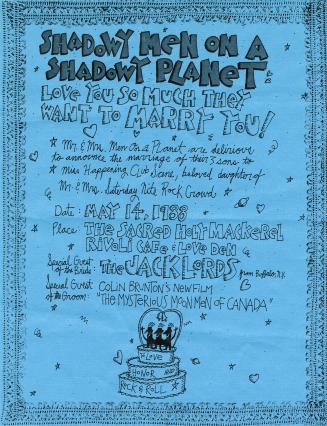 SHADOWY MEN ON A
SHADOWY PLANET
LOVE YOU SO MUCH THEY
WANT TO MARRY YOU!
Mr. & Mrs. Men On A Planet are delirious
to announce the marriage of their 3 sons to
Miss Happening Club Scene, beloved daughter of
Mr. & Mrs. Saturday Nite Rock Crowd
Date: MAY 14, 1988
Place: THE SACRED HOLY MACKEREL
RIVOLI CAFE & LOVE DEN
Special Guest
of the Bride: THE JACK LORDS from Buffalo, N.Y.
Special Guest
of the Groom: COLIN BRUNTON'S NEW FILM
"THE MYSTERIOUS MOON MEN OF CANADA"
LOVE
HONOR AND
ROCK & ROLL